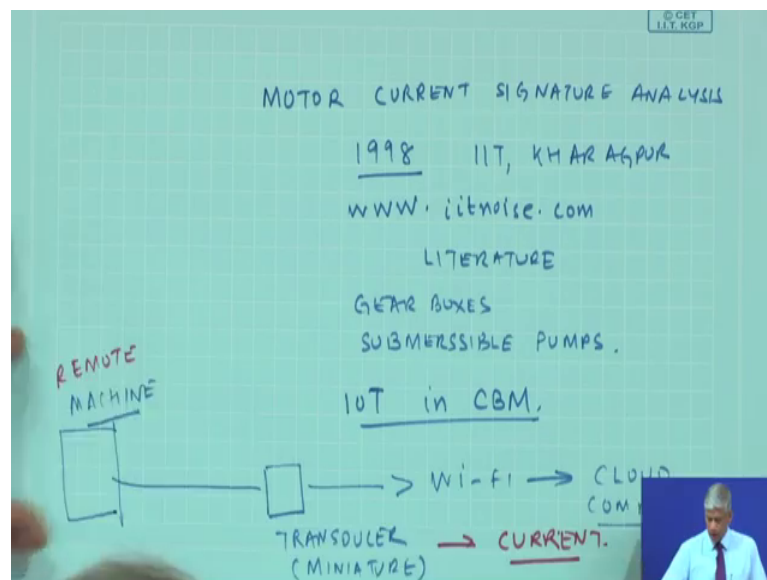 © CET
I.I.T. KGP
MOTOR CURRENT SIGNATURE ANALYSIS
1998 IIT, KHARAGPUR
WWW.iitnoise.com
LITERATURE
GEAR BOXES
SUBMERSSIBLE PUMPS.
REMOTE
MACHINE
IOT in CBM.
Wi-FI → CLOUD
TRANSDUCER → CURRENT.
(MINIATURE)